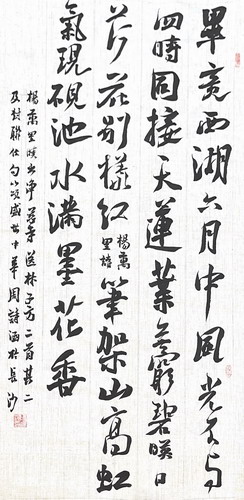 畢竟西湖六月中風光不與
四時同接天蓮葉無窮碧映日
荷花別樣紅 楊萬里 筆架山高虹
氣現硯池水滿墨花香
楊萬里曉出淨慈寺送林子方二首其二
及對聯 句以頌盛世中華周詩涵於長沙